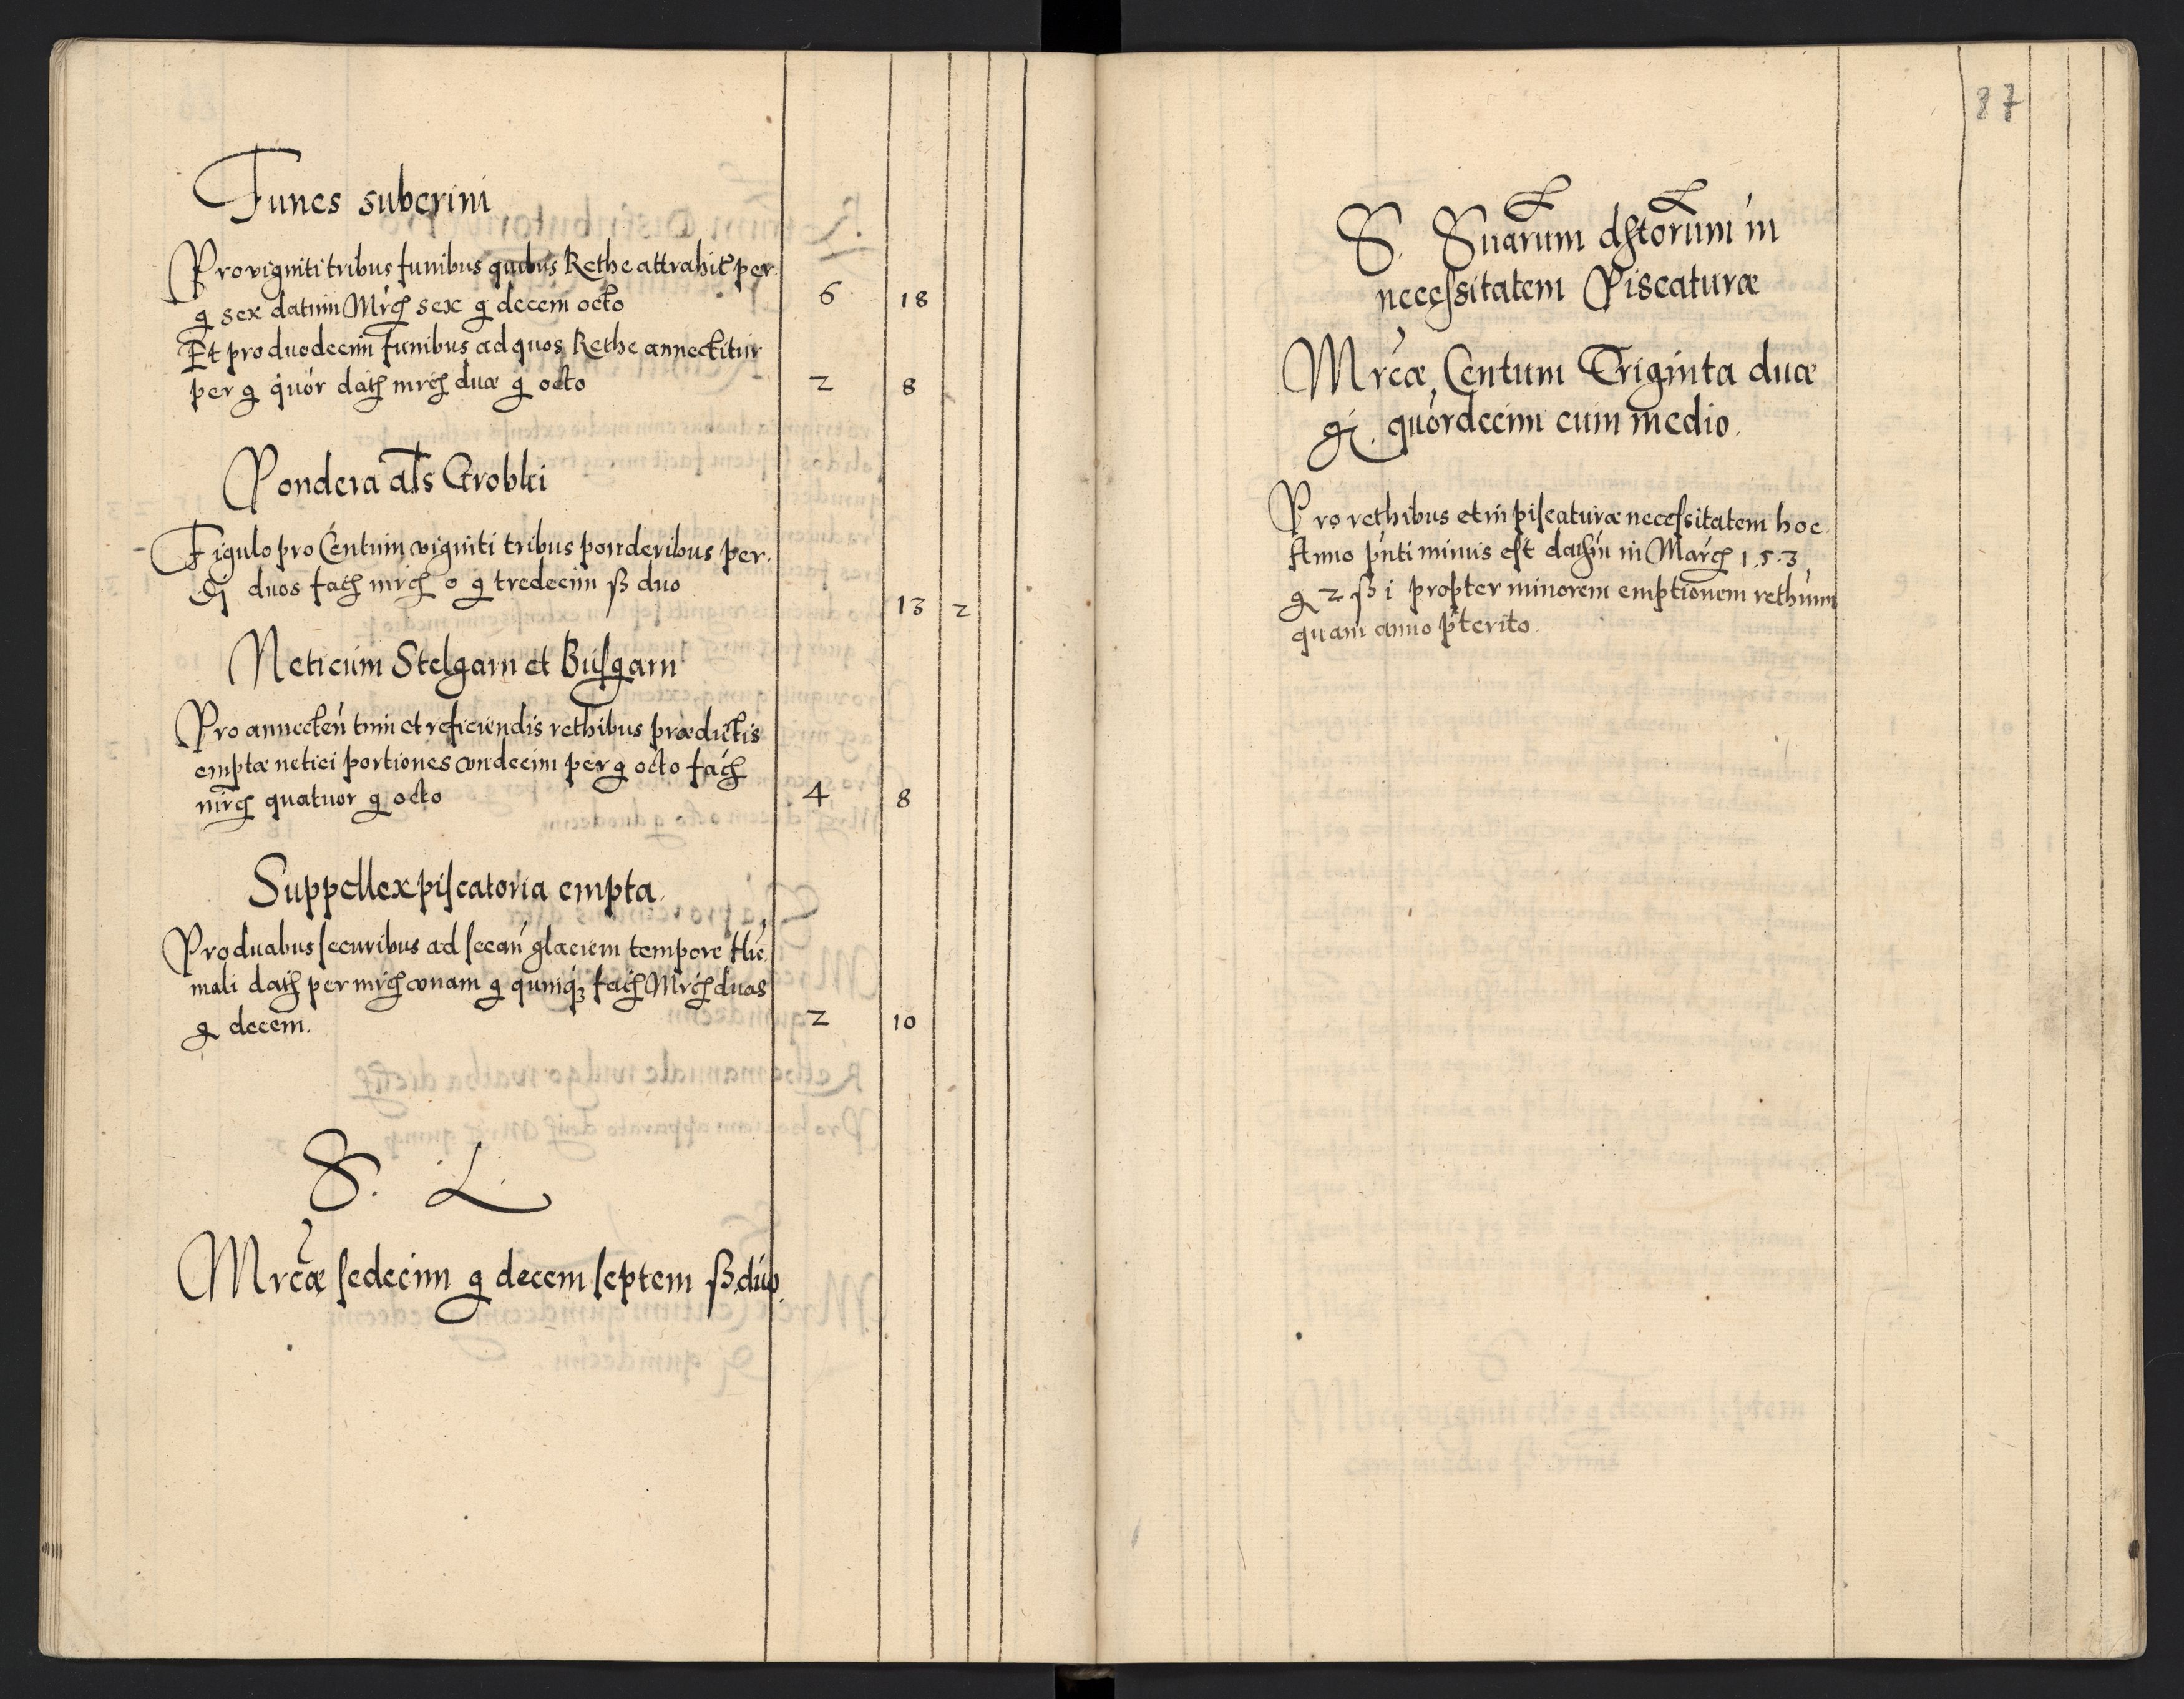 Funes suberini
Pro vigniti tribus funibus quibus Rethe attrahitr per
g sex datum Mrcz sex g decem octo 6 18
Et pro duodecim funibus ad quos Rethe annectitur
per g quor datz mrcz duæ g octo 2 8
Pondera als Grobki
Figulo pro Centum vigniti tribus ponderibus per
duos facz mrcz 0 g tredecim ß duo 13 2
Neticum Stelgarn et Busgarn
Pro annecten tum et reficiendis rethibus prædictis
emptæ netici portiones vndecim per g octo facz
mrcz quatuor g octo 4 8
Suppellex piscatoria empta.
Pro duabus securibus ad secan glaciem tempore Hie
mali datz per mrcz vnam g quinqz facz Mrcz duas
g decem. 2 10
S. L.
Mrcæ sedecim g decem septem ß duo.
87
S. Suarum dstorum in
necessitatem Piscaturæ
Mrcæ Centum Triginta duæ
gr. quordecim cum medio.
Pro rethibus et in piscaturæ necessitatem hoc
Anno pnti minus est in Marcz 1.5.3
g 2 ß i propter minorem emptionem rethium
quam anno pterito.